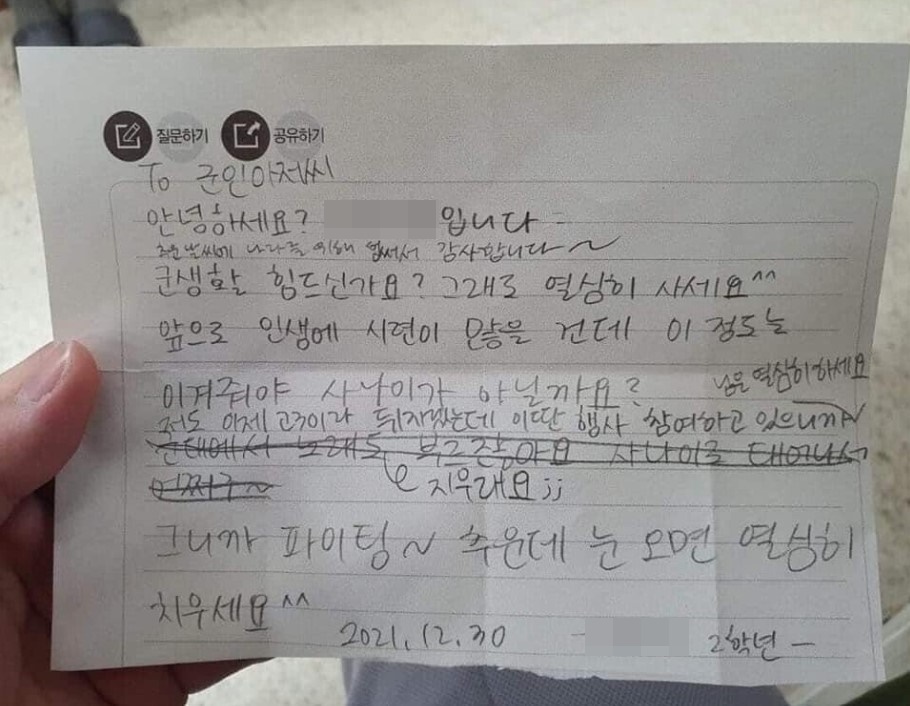 질문하기 공유하기
To 군인아저씨
안녕하세요? 입니다
추운 날씨에 나라를 위해 힘써서 감사합니다~
군생활 힘드신가요? 그래도 열심히 사세요^^
앞으로 인생에 시련이 많을 건데 이 정도는
이겨줘야 사나이가 아닐까요?
님은 열심히하세요
저도 이제 고3이라 뒤지겠는데 이딴 행사 참여하고 있으니까~
군대에서 노래도 부르잖아요 사나이로 태어나서
어쩌구~
지우래요;;
그니까 파이팅~ 추운데 눈 오면 열심히
치우세요^^
2021.12.30 - 2학년 -